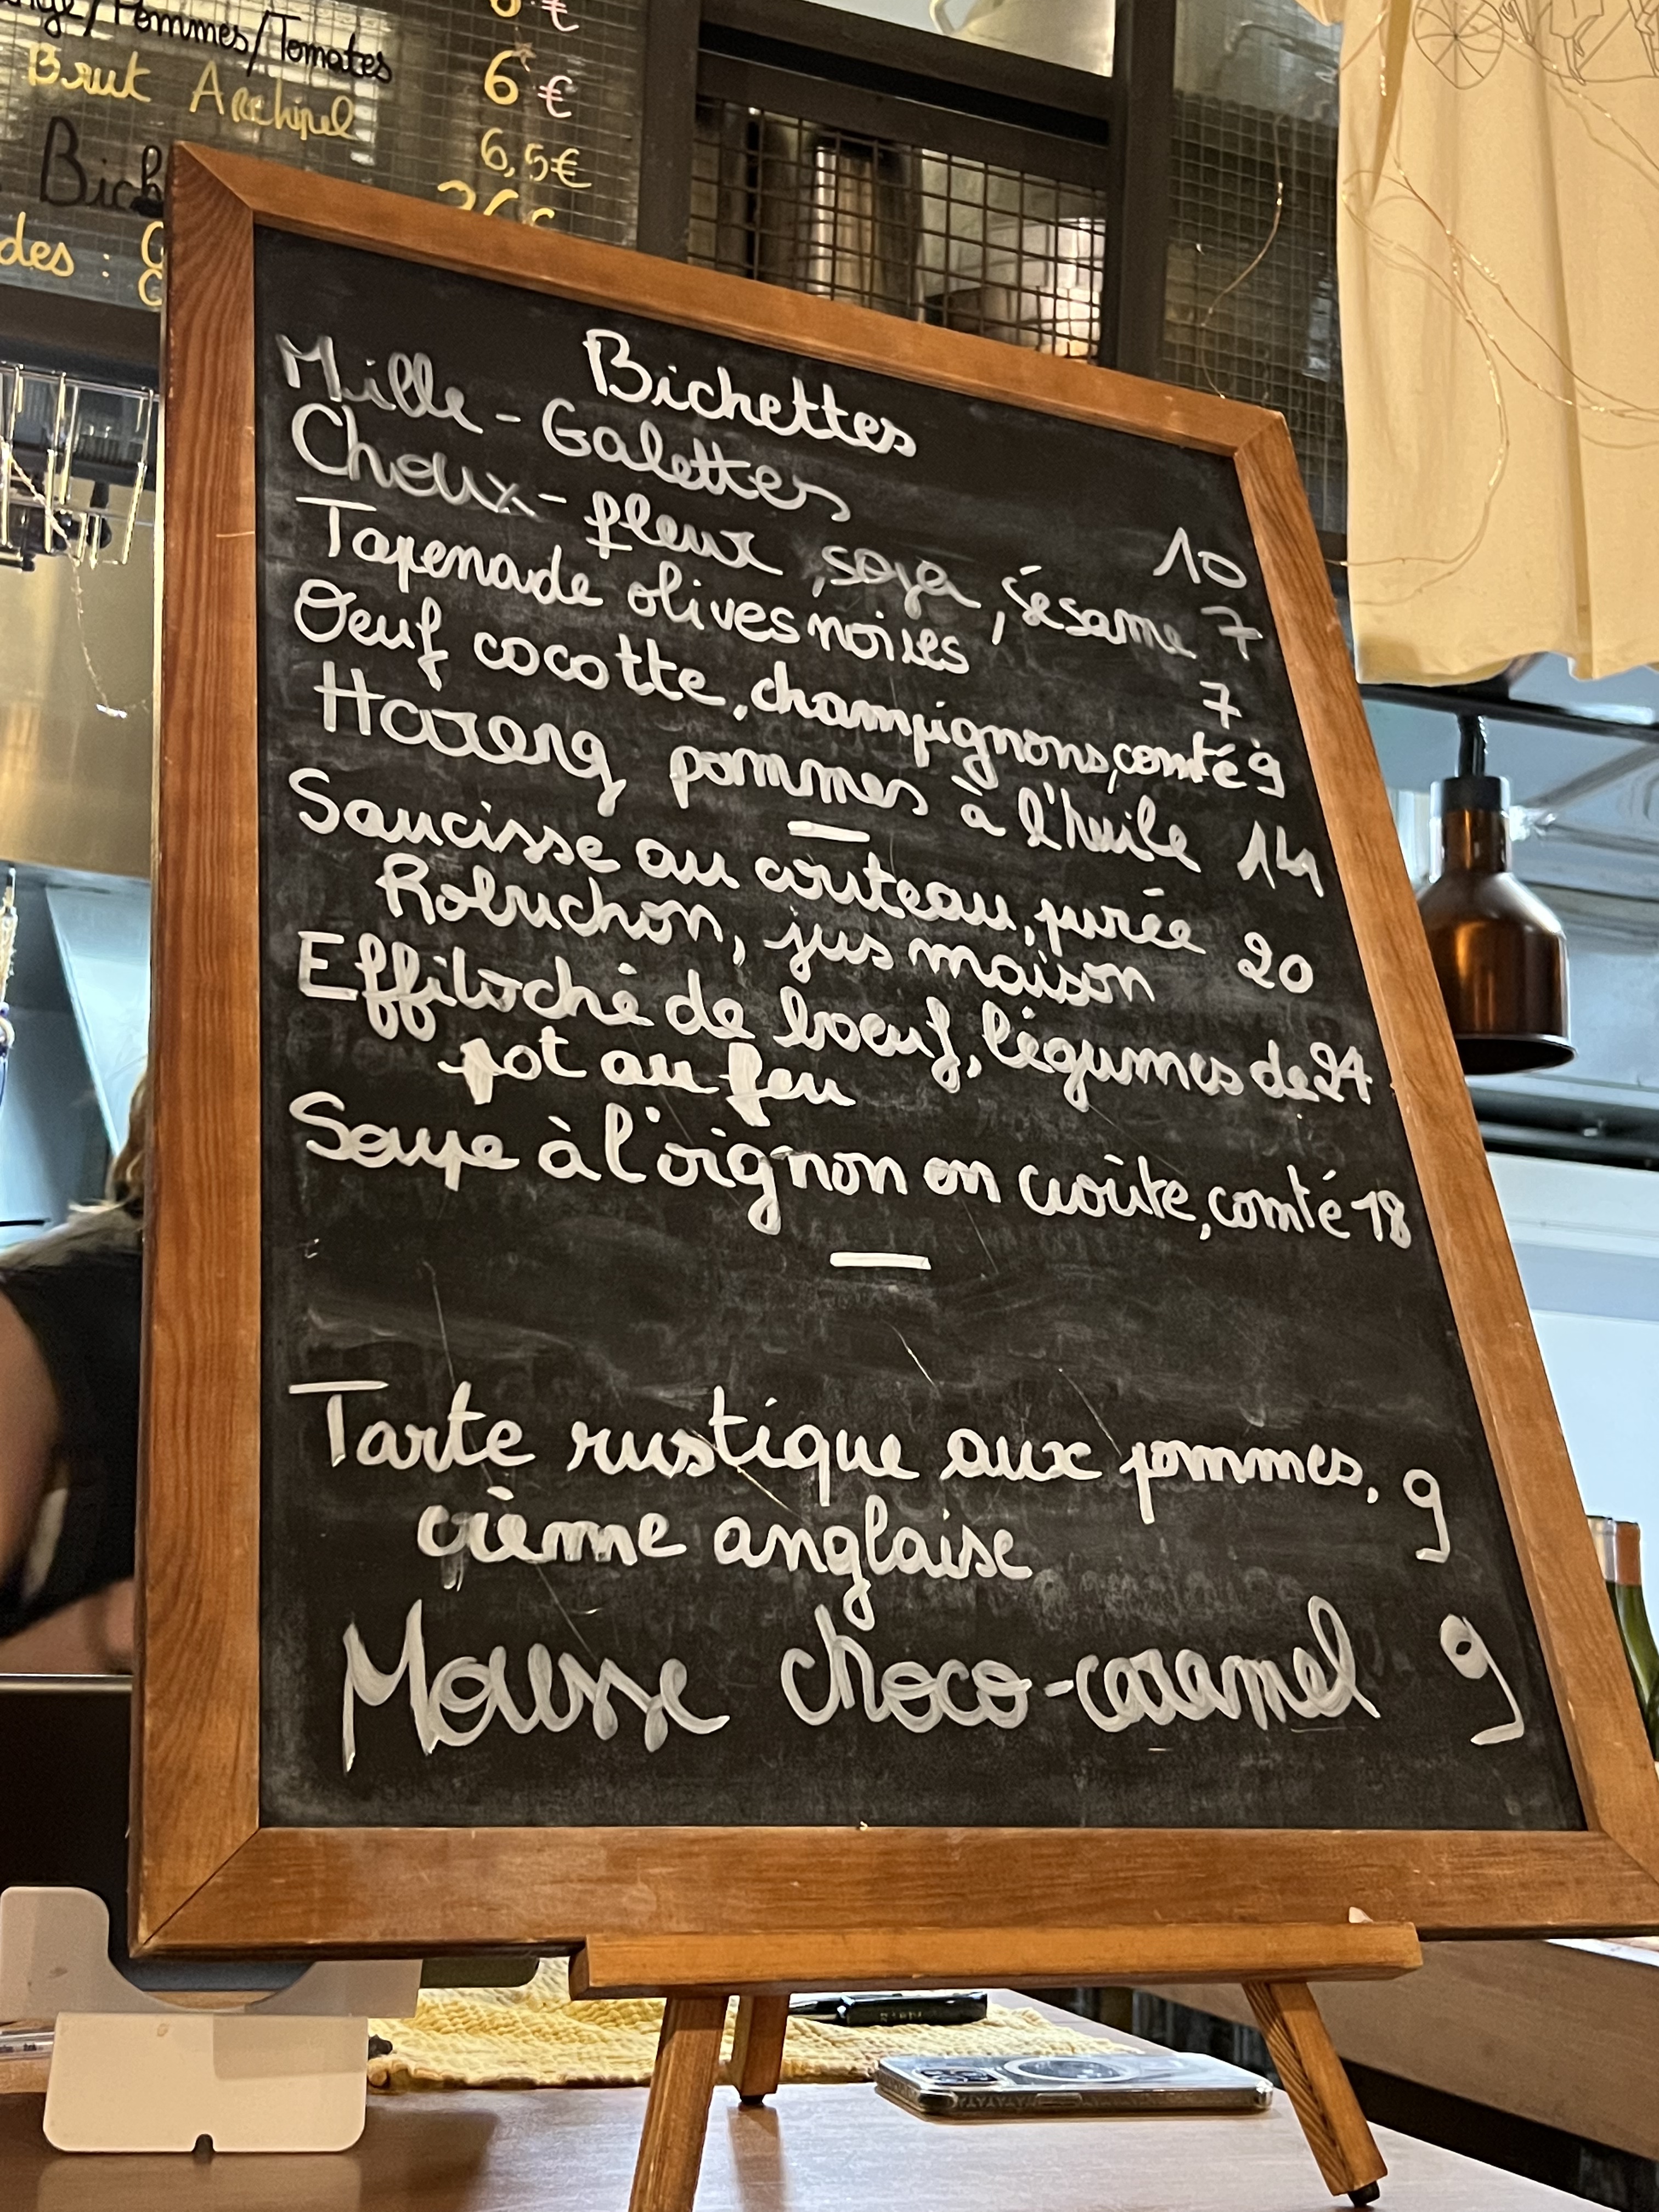 /Pommes/Tomates
6 €
Brut Archipel 6,5€
Bich
des :
Bichettes
Mille-Galettes 10
Choux-fleur, soja, sésame 7
Tapenade olives noires 7
Oeuf cocotte, champignons, comté 9
Hareng pommes à l'huile 14
Saucisse au couteau, purée 20
Robuchon, jus maison
Effiloché de boeuf, légumes de 24
pot au feu
Soupe à l'oignon en croûte, comté 18
Tarte rustique aux pommes, 9
crème anglaise
Mousse choco-caramel 9